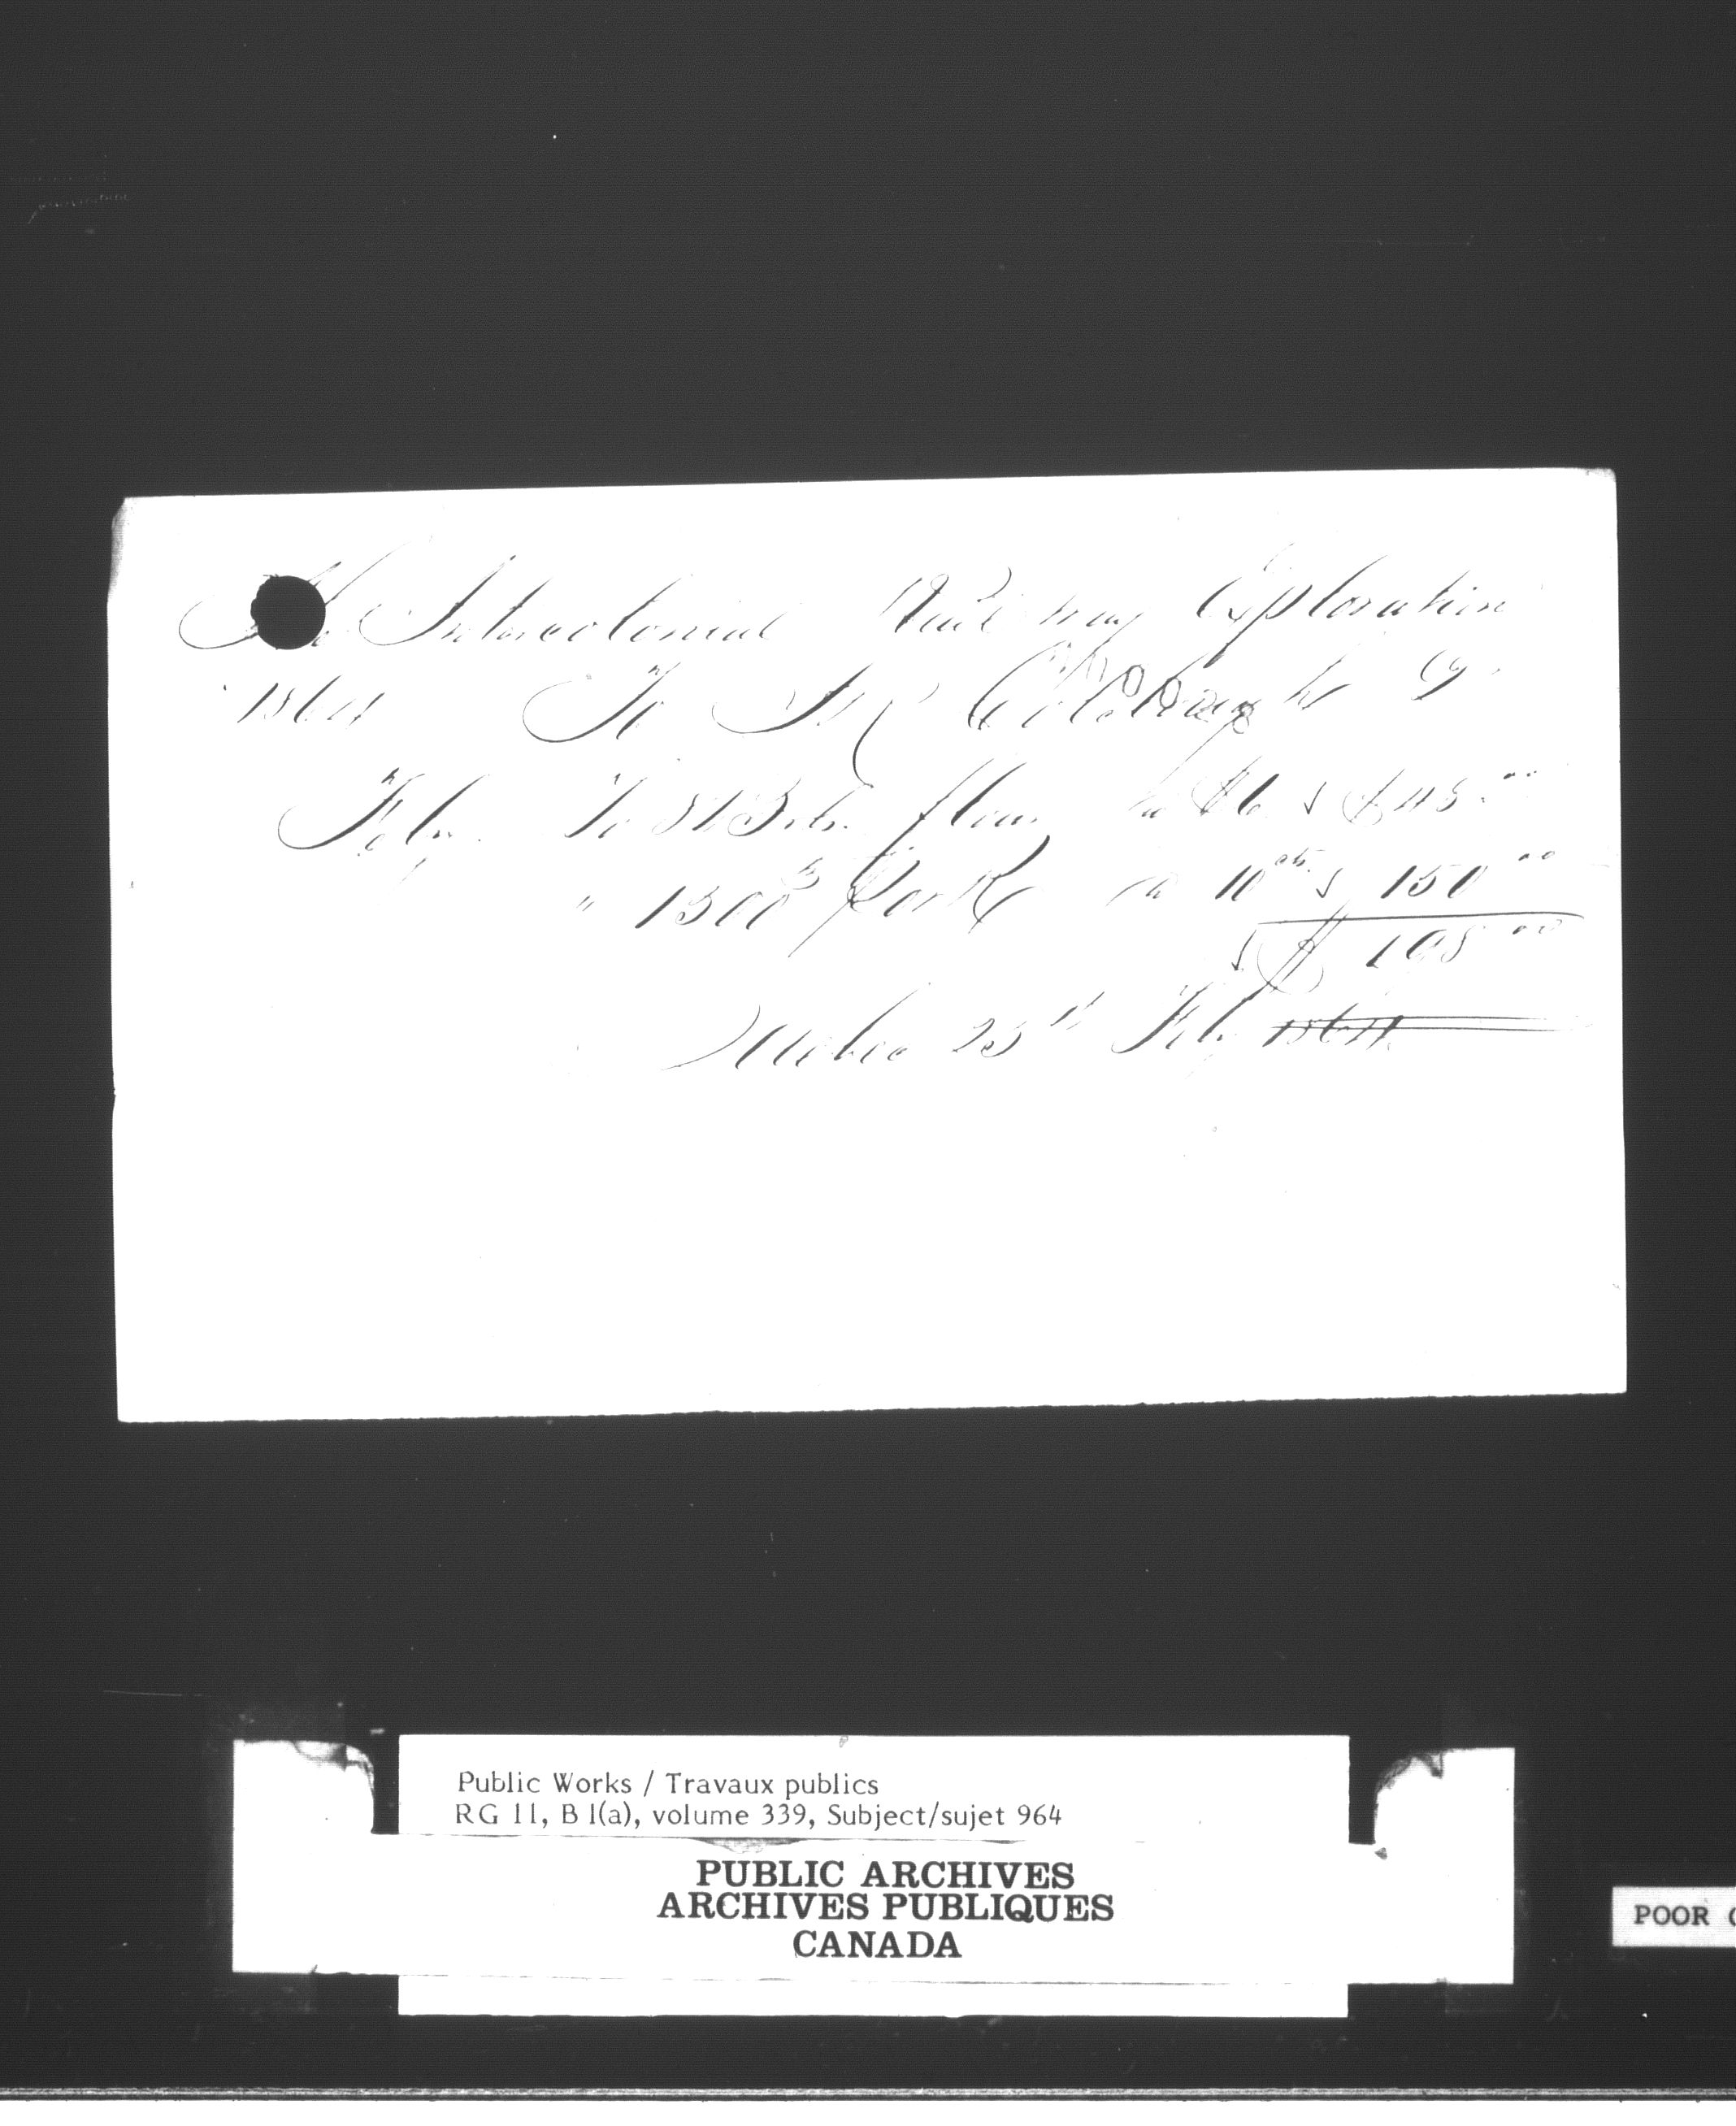 The Intercolonial Rail way Exploration
1864 To
Feby. To 8 Brls. flour @ $6 $ 48.00
" 1500 lb Pork @ 10 cts. 150 00
$ 198 00
25th Feby 1864
Public Works / Travaux publics
RG 11, B 1(a), volume 339, Subject/sujet 964
PUBLIC ARCHIVES
ARCHIVES PUBLIQUES
CANADA
POOR